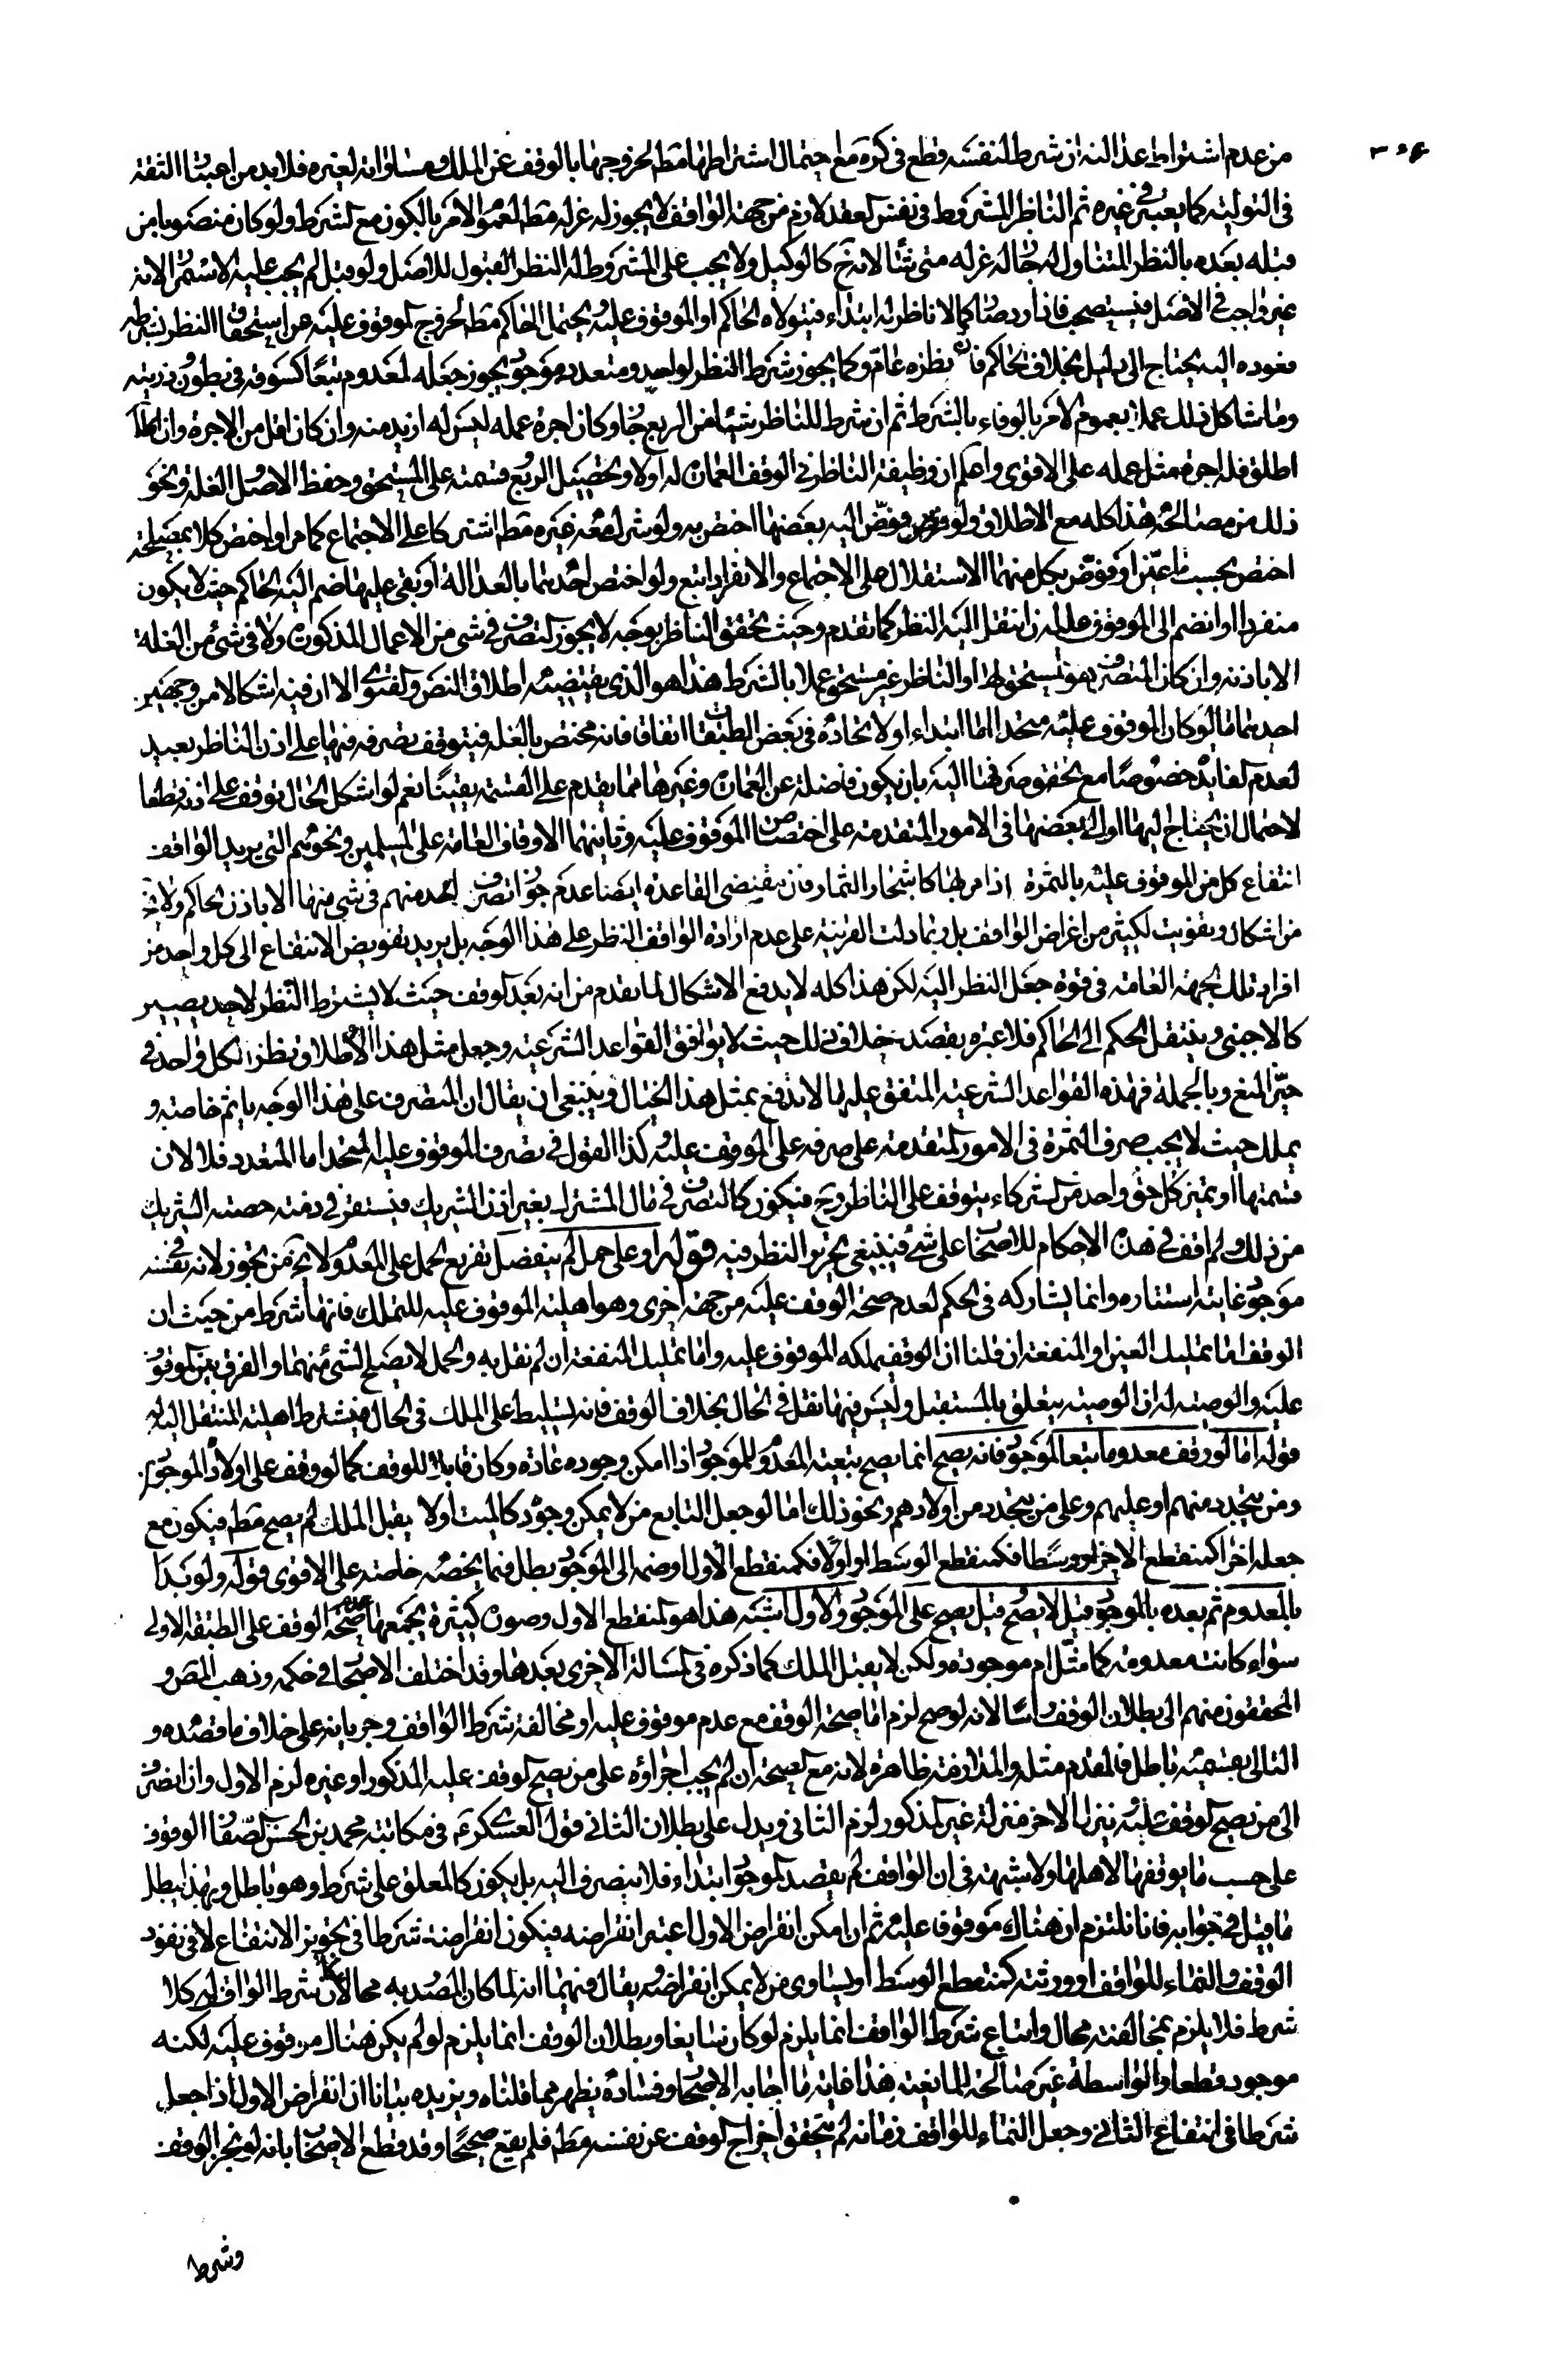 من عدم اشتراط عدالته ان شرط لنفسه قطع فى كره مع احتمال اشتراطها مط لخروجها بالوقف عن الملك ومساواته لغيره فلا بد من اعتبار الثقة
فى التولية كما يعتبر فى غيره ثم الناظر المشروط فى نفس العقد لازم من جهة الواقف لا يجوز له عزله مط لعموم الامر بالكون مع الشرط ولو كان منصوبا من
قبله بعده بالنظر المتناول له جاز له عزله متى شاء لانه ح كالوكيل ولا يجب على المشروط له النظر القبول للاصل ولو قبل لم يجب عليه الاستمرار لانه
غير واجب فى الاصل فيستصحب فاذا رد صار كما لا ناظر له ابتداء فيتولاه الحاكم او الموقوف عليه ويحتمل الحاكم مط لخروج الموقوف عليه عن استحقاق النظر بشرطه
فعوده اليه يحتاج الى دليل بخلاف الحاكم فان نظره عام وكما يجوز شرط النظر لواحد ومتعدد موجود يجوز جعله لمعدوم تبعا كسوقه فى بطون ذريته
وما شاكل ذلك عملا بعموم الامر بالوفاء بالشرط ثم ان شرط للناظر شيئا من الريع جاز وكان اجرة عمله ليس له ازيد منه وان كان اقل من الاجرة وان
اطلق فله اجرة مثل عمله على الاقوى واعلم ان وظيفة الناظر فى الوقف العمارة له اولا وتحصيل الريع وقسمته على المستحق وحفظ الاصل والغلة ونحو
ذلك من مصالحه هذا كله مع الاطلاق ولو فوض اليه بعضها اختص به ولو شرك معه غيره مط اشتركا على الاجتماع كما مر او اختص كلا بمصلحة
اختص بحسب ما عين او فوض لكل منهما الاستقلال على الاجتماع والانفراد اتبع ولو اختص احدهما بالعدالة او بقى عليها ضم اليه الحاكم حيث لا يكون
منفردا او انضم الى الموقوف عليه ان انتقل اليه النظر كما تقدم وحيث تحقق الناظر بوجه لا يجوز التصرف فى شئ من الاعمال المذكورة ولا فى شئ من الغلة
الا باذنه وان كان المتصرف هو المستحق لها او الناظر غير مستحق عملا بالشرط هذا هو الذى يقتضيه اطلاق النص والفتوى الا ان فيه اشكالا من وجهين
احدهما ما لو كان الموقوف عليه متحدا اما ابتداء او لاتحاده فى بعض الطبقات اتفاقا فانه مختص بالغلة فيتوقف تصرفه فيها على اذن الناظر بعيد
لعدم الفائدة خصوصا مع تحقق صرفها اليه بان يكون فاضلة عن العمارة وغيرها مما يقدم على القسمة يقينا نعم لو اشكل الحال توقف على اذنه قطعا
لاحتمال ان يحتاج اليها او الى بعضها فى الامور المتقدمة على اختصاص الموقوف عليه وثانيهما الاوقاف العامة على المسلمين ونحوهم التى يريد الواقف
انتفاع كل من الموقوف عليه بالثمرة اذا مر بها كاشجار الثمار فان مقتضى القاعدة ايضا عدم جواز تصرف احد منهم فى شئ منها الا باذن الحاكم ولا يخ
من اشكال وتفويت لكثير من اغراض الواقف بل ربما دلت القرينة على عدم ارادة الواقف النظر على هذا الوجه بل يريد تفويض الانتفاع الى كل واحد من
افراد تلك الجهة العامة فى قوة جعل النظر اليه لكن هذا كله لا يدفع الاشكال لما تقدم من انه بعد الوقف حيث لا يشترط النظر لاحد يصير
كالاجنبى وينتقل الحكم الى الحاكم فلا عبرة بقصده خلاف ذلك حيث لا يوافق القواعد الشرعية وجعل مثل هذا الاطلاق نظرا لكل واحد فى
حيز المنع وبالجملة فهذه القواعد الشرعية المتفق عليها لا تدفع بمثل هذا الخيال وينبغى ان يقال ان المتصرف على هذا الوجه ياثم خاصة و
يملك حيث لا يجب صرف الثمرة فى الامور المتقدمة على صرفه على الموقوف عليه وكذا القول فى تصرف الموقوف عليه المتحد اما المتعدد فلا لان
قسمتها وتميز كل حق واحد من الشركاء يتوقف على الناظر وح فيكون كالتصرف فى مال المشترك بغير اذن الشريك فيستقر فى ذمته حصته الشريك
من ذلك ولم اقف فى هذه الاحكام للاصحاب على شئ فينبغى تحرير النظر فيه قوله او على حمل لم ينفصل تفريع الحمل على المعدوم لا يخ من تجوز لانه فى نفسه
موجود غايته استتاره وانما يشاركه فى الحكم لعدم صحة الوقف عليه من جهة اخرى وهو اهلية الموقوف عليه للتملك فانها شرط من حيث ان
الوقف اما تمليك العين او المنفعة ان قلنا ان الوقف يملكه الموقوف عليه واما تمليك المنفعة ان لم نقل به والحمل لا يصلح لشئ منهما والفرق بين الوقف
عليه والوصية له ان الوصية يتعلق بالمستقبل وليس فيها نقل فى الحال بخلاف الوقف فانه تسليط على الملك فى الحال فيشترط اهلية المنتقل اليه له
قوله اما لو وقف معدوما تبعا لموجود فانه يصح انما يصح بتبعية المعدوم للموجود اذا امكن وجوده عادة وكان قابلا للوقف كما لو وقف على اولاد الموجودين
ومن يتجدد منهم او عليهم وعلى من يتجدد من اولادهم ونحو ذلك اما لو جعل التابع من لا يمكن وجوده كالميت او لا يقبل الملك لم يصح مط فيكون مع
جعله اخرا كمنقطع الاخر او وسطا فكمنقطع الوسط او اولا فكمنقطع الاول او ضمه الى الموجود بطل فيما يخصه خاصة على الاقوى قوله ولو بدا
بالمعدوم ثم بعده بالموجود قيل لا يصح وقيل يصح على الموجود والاول اشبه هذا هو المنقطع الاول وصوره كثيرة يجمعها عدم صحة الوقف على الطبقة الاولى
سواء كانت معدومة كما مثل ام موجودة ولكن لا يقبل الملك كما ذكره فى المسالة الاخرى بعدها وقد اختلف الاصحاب فى حكمه وذهب المص و
المحققون منهم الى بطلان الوقف راسا لانه لو صح لزم اما صحة الوقف مع عدم موقوف عليه او مخالفة شرط الواقف وجريانه على خلاف ما قصده و
التالى بقسميه باطل فالمقدم مثله والملازمة ظاهرة لانه مع الصحة ان لم يجب اجراؤه على من يصح الوقف عليه المذكور او غيره لزم الاول وان انصرف
الى من يصح الوقف عليه ينزل الاخر منزلة غير المذكور لزم الثانى ويدل على بطلان الثانى قول العسكرى ع فى مكاتبة محمد بن الحسن الصفار الوقوف
على حسب ما يوقفها اهلها ولا شبهة فى ان الواقف لم يقصد الموجود ابتداء فلا ينصرف اليه بل يكون كالمعلق على شرط وهو باطل وبهذا يبطل
ما قيل فى جوابه فانا نلتزم ان هناك موقوفا عليه ثم ان امكن انقراض الاول اعتبر انقراضه فيكون انقراضه شرطا فى تجويز الانتفاع لا فى نفوذ
الوقف والنماء للواقف او ورثته كمنقطع الوسط او يساوى من لا يمكن انقراضه ويقال فيهما انه لما كان المصدر به محالا كان شرط الواقف له كلا
شرط فلا يلزم بمخالفته محال واتباع شرط الواقف انما يلزم لو كان سايغا وبطلان الوقف انما يلزم لو لم يكن هناك موقوف عليه لكنه
موجود قطعا والواسطة غير صالحة للمانعية هذا غاية ما اجاب به الاصحاب وفساده يظهر مما قلناه ويزيده بيانا ان انقراض الاول اذا جعل
شرطا فى انتفاع الثانى وجعل النماء للواقف زمانه لم يتحقق اخراج الوقف عن نفسه مط فلم يقع صحيحا وقد قطع الاصحاب بانه لو نجز الوقف
وشرط